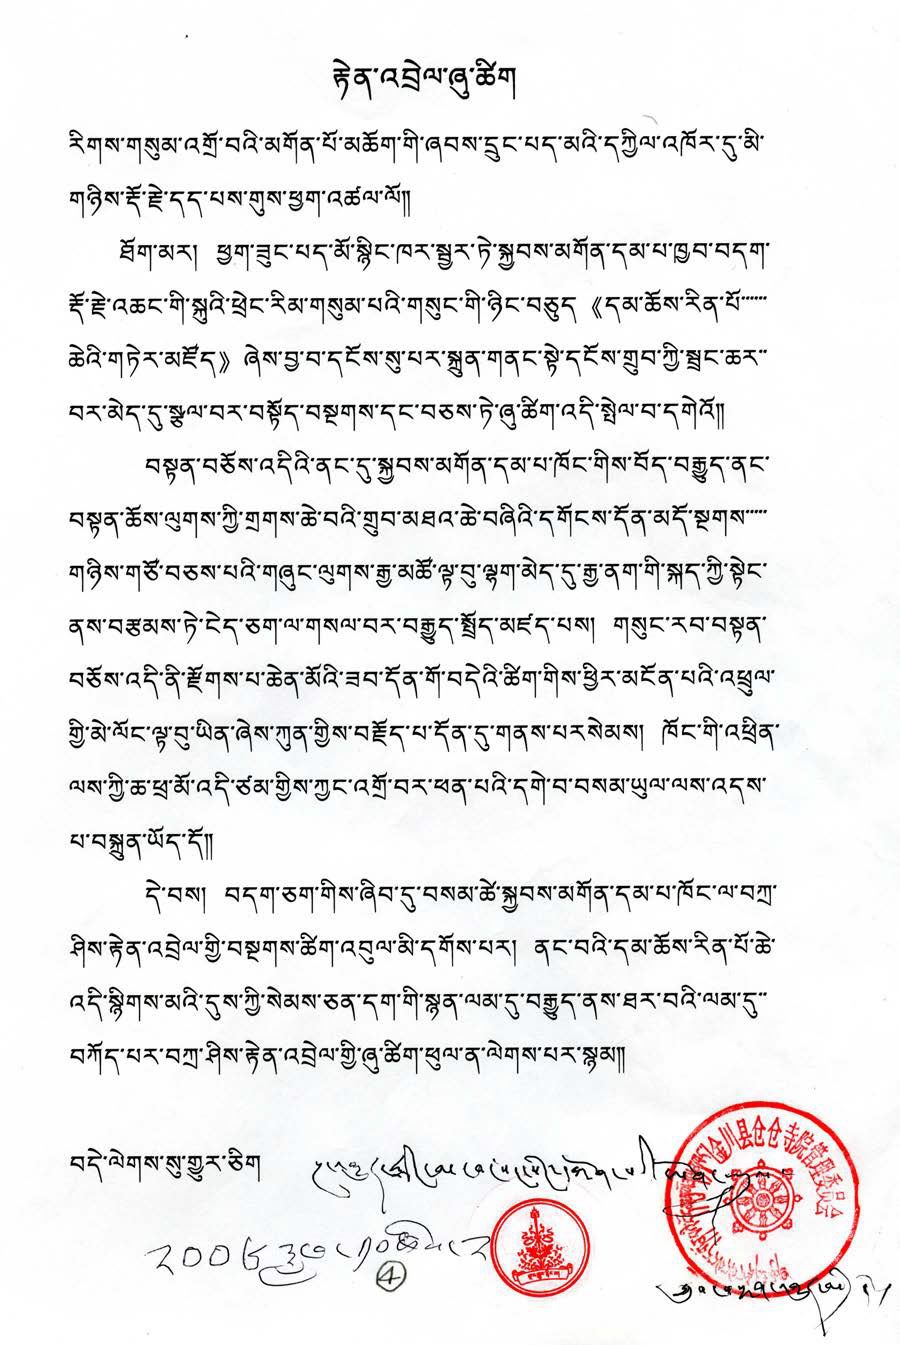 རྟེན་འབྲེལ་ཞུ་ཚིག
རིགས་གསུམ་འགྲོ་བའི་མགོན་པོ་མཆོག་གི་ཞབས་དྲུང་པད་མའི་དཀྱིལ་འཁོར་དུ་མི་
གཉིས་རྡོ་རྗེ་དད་པས་གུས་ཕྱག་འཚལ་ལོ།།
ཐོག་མར། ཕྱག་ཟུང་པད་མོ་སྙིང་ཁར་སྦྱར་ཏེ་སྐྱབས་མགོན་དམ་པ་ཁྱབ་བདག་
རྡོ་རྗེ་འཆང་གི་སྐུའི་ཕྲེང་རིམ་གསུམ་པའི་གསུང་གི་ཉིང་བཅུད 《དམ་ཆོས་རིན་པོ་
ཆེའི་གཏེར་མཛོད》 ཞེས་བྱ་བ་དངོས་སུ་པར་སྐྲུན་གནང་སྟེ་དངོས་གྲུབ་ཀྱི་སྦྲང་ཆར་
བར་མེད་དུ་སྩལ་བར་བསྟོད་བསྔགས་དང་བཅས་ཏེ་ཞུ་ཚིག་འདི་སྤེལ་བ་དགེའོ།།
བསྟན་བཅོས་འདིའི་ནང་དུ་སྐྱབས་མགོན་དམ་པ་ཁོང་གིས་བོད་བརྒྱུད་ནང་
བསྟན་ཆོས་ལུགས་ཀྱི་གྲགས་ཆེ་བའི་གྲུབ་མཐའ་ཆེ་བཞིའི་དགོངས་དོན་མདོ་སྔགས་
གཉིས་གཙོ་བཅས་པའི་གཞུང་ལུགས་རྒྱ་མཚོ་ལྟ་བུ་ལྷག་མེད་དུ་རྒྱ་ནག་གི་སྐད་ཀྱི་སྟེང་
ནས་བརྩམས་ཏེ་ངེད་ཅག་ལ་གསལ་བར་བརྒྱུད་སྤྲོད་མཛད་པས། གསུང་རབ་བསྟན་
བཅོས་འདི་ནི་རྫོགས་པ་ཆེན་མོའི་ཟབ་དོན་གོ་བདེའི་ཚིག་གིས་ཕྱིར་མངོན་པའི་འཕྲུལ་
གྱི་མེ་ལོང་ལྟ་བུ་ཡིན་ཞེས་ཀུན་གྱིས་བརྗོད་པ་དོན་དུ་གནས་པར་སེམས། ཁོང་གི་འཕྲིན་
ལས་ཀྱི་ཆ་ཕྲ་མོ་འདི་ཙམ་གྱིས་ཀྱང་འགྲོ་བར་ཕན་པའི་དགེ་བ་བསམ་ཡུལ་ལས་འདས་
པ་བསྐྲུན་ཡོད་དོ།།
དེ་བས། བདག་ཅག་གིས་ཞིབ་དུ་བསམ་ཚེ་སྐྱབས་མགོན་དམ་པ་ཁོང་ལ་བཀྲ་
ཤིས་རྟེན་འབྲེལ་གྱི་བསྔགས་ཚིག་འབུལ་མི་དགོས་པར། ནང་བའི་དམ་ཆོས་རིན་པོ་ཆེ་
འདི་སྙིགས་མའི་དུས་ཀྱི་སེམས་ཅན་དག་གི་སྙན་ལམ་དུ་བརྒྱུད་ནས་ཐར་བའི་ལམ་དུ་
བཀོད་པར་བཀྲ་ཤིས་རྟེན་འབྲེལ་གྱི་ཞུ་ཚིག་ཕུལ་ན་ལེགས་པར་སྙམ།།
བདེ་ལེགས་སུ་གྱུར་ཅིག
金川县仓仓寺院管理委员会
4